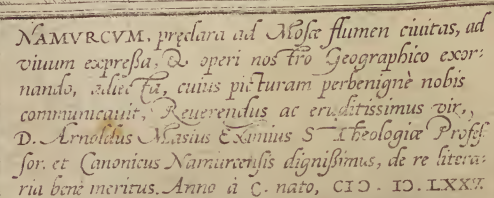 NAMVRCVM, pręclara ad Mosę flumen ciuitas, ad
viuum expreſsa, & operi nostro Geographico exor-
nando, adiecta, cuius picturam perbenignè nobis
communicauit, Reuerendus ac eruditissimus vir,
D. Arnoldus Masius Eximius S Theologiæ Profeſ-
sor. et Canonicus Namurcensis dignißimus, de re litera-
ria benè meritus. Anno à C. nato, CIↃ. IↃ. LXXV.